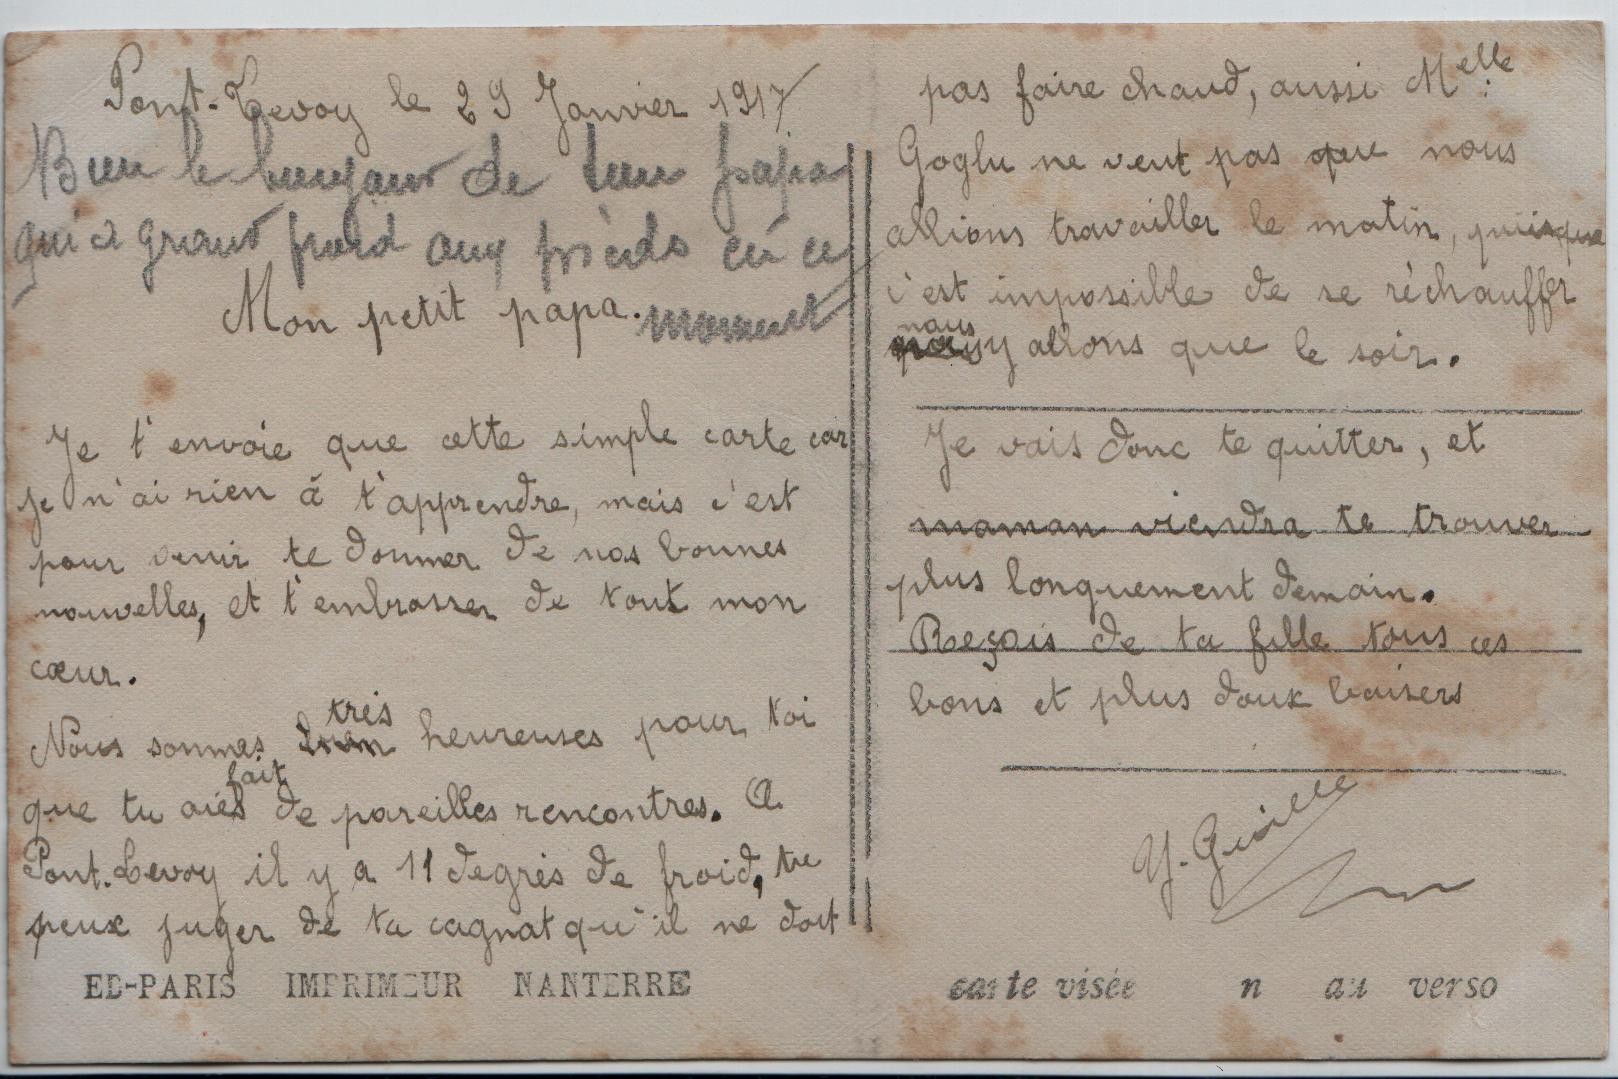 Pont-Levoy le 29 Janvier 1917
Bien le bonjour de ton papa
qui a grand froid aux pieds en ce
moment
Mon petit papa.
Je t'envoie que cette simple carte car
je n'ai rien à t'apprendre, mais c'est
pour venir te donner de nos bonnes
nouvelles, et t'embrasser de tout mon
cœur.
Nous sommes très heureuses pour toi
que tu aies fait de pareilles rencontres. A
Pont-Levoy il y a 11 degrés de froid, tu
peux juger de ta cagnat qu'il ne doit
pas faire chaud, aussi Melle:
Goglu ne veut pas que nous
allions travailler le matin, puisque
c'est impossible de se réchauffer
nous y allons que le soir.
Je vais donc te quitter, et
maman viendra te trouver
plus longuement demain.
Reçois de ta fille tous ces
bons et plus doux baisers
Y. Guille
ED-PARIS IMPRIMEUR NANTERRE
carte visée n au verso